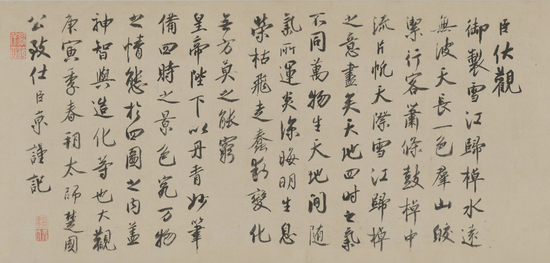 臣伏觀
御製雪江歸棹水遠
無波天長一色羣山皎
潔行客蕭條鼓棹中
流片帆天際雪江歸棹
之意盡矣天地四時之氣
不同萬物生天地間隨
氣所運炎涼晦明生息
榮枯飛走蠢動變化
無方莫之能窮
皇帝陛下以丹青妙筆
備四時之景色究萬物
之情態於四圖之內蓋
神智與造化等也大觀
庚寅季春朔太師楚國
公致仕臣京謹記